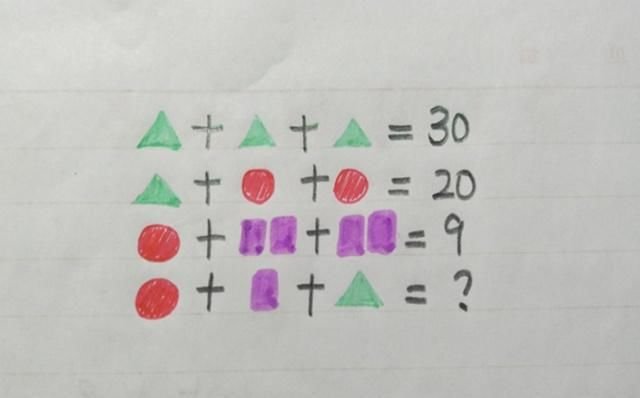 ▲ + ▲ + ▲ = 30
▲ + ● + ● = 20
● + ■■ + ■■ = 9
● + ■ + ▲ = ?